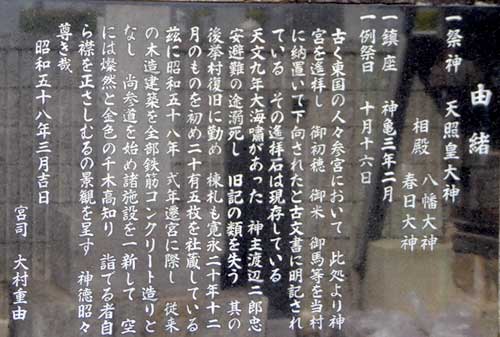 由緒
一祭神 天照皇大神
相殿 八幡大神
春日大神
一鎮座 神亀三年二月
一例祭日 十月十六日
古く東国の人々参宮において 此処より神
宮を遥拝し 御初穂 御米 御馬等を当村
に納置いて下向されたと古文書に明記され
ている その遥拝石は現存している
天文九年大海嘯があった 神主渡辺二郎忠
安避難の途溺死し 旧記の類を失う 其の
後挙村復旧に勤め 棟札も寛永二十年十二
月のものを初め二十有五枚を社蔵している
茲に昭和五十八年 式年遷宮に際し 従来
の木造建築を全部鉄筋コンクリート造りと
なし 尚参道を始め諸施設を一新して 空
には燦然と金色の千木高知り 詣でる者自
ら襟を正さしむるの景観を呈す 神徳昭々
尊き哉
昭和五十八年三月吉日
宮司 大村重由